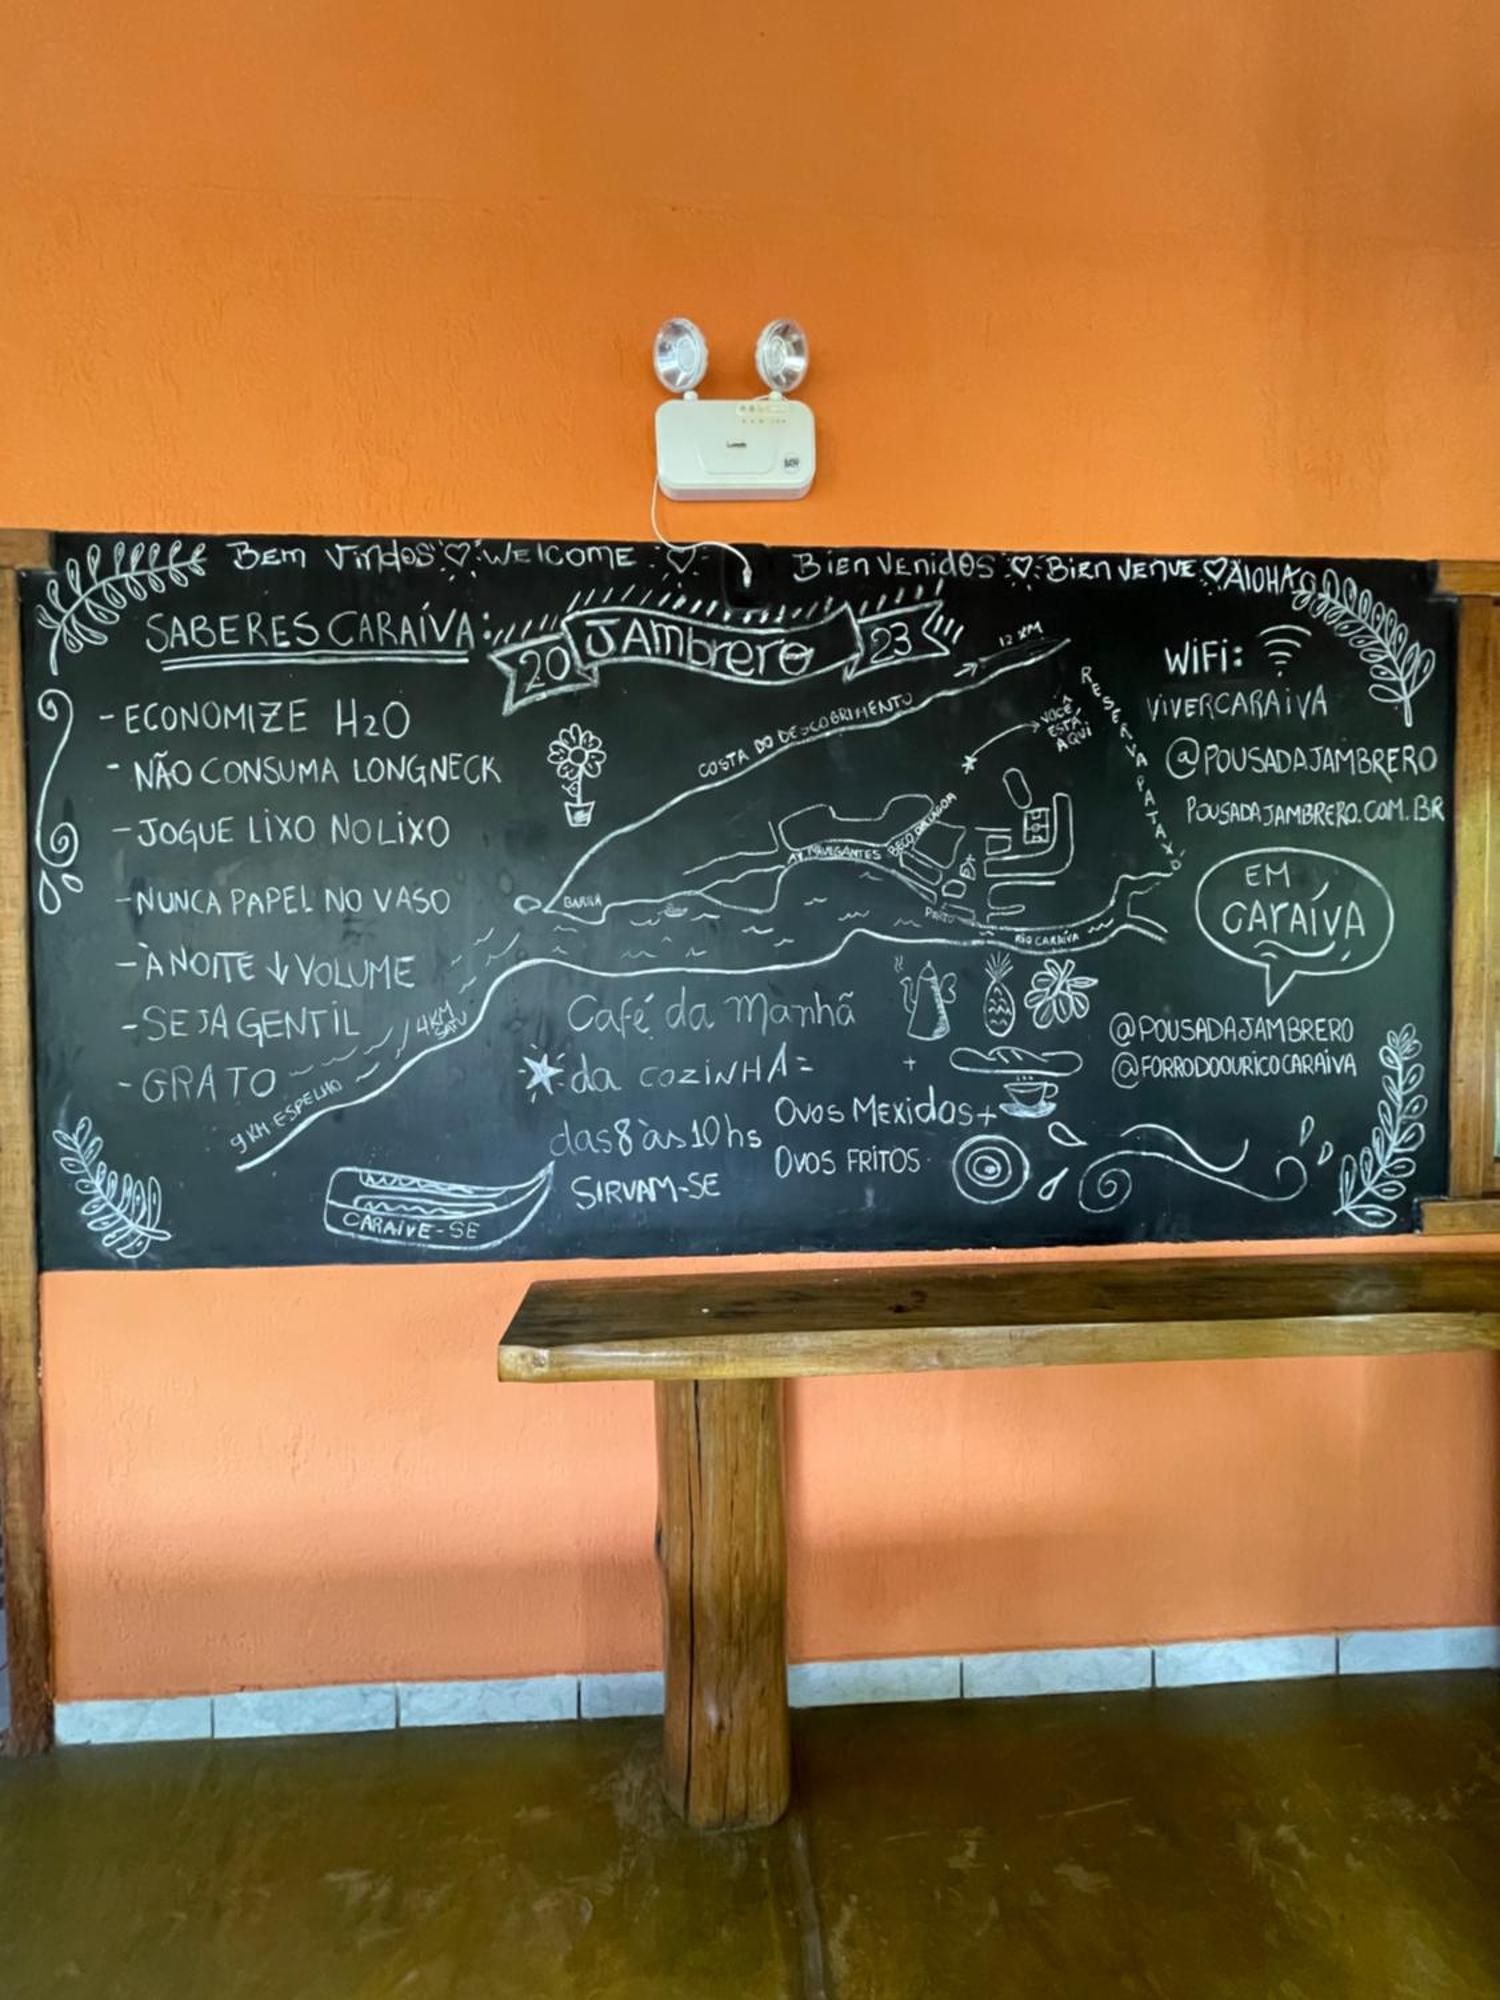 Bem Vindos WELCOME BienVenidos BienVenue ALOHA
SABERES CARAÍVA:
- ECONOMIZE H2O
- NÃO CONSUMA LONGNECK
- JOGUE LIXO NO LIXO
- NUNCA PAPEL NO VASO
- À NOITE ↓ VOLUME
- SEJA GENTIL
- GRATO
20 JAMbrero 23
12 KM
COSTA DO DESCOBRIMENTO
VOCÊ
ESTÁ
AQUI
RESERVA PATAXÓ
BECO DA LAGOA
AV NAVEGANTES
BARRA
PORTO
RIO CARAÍVA
4KM
SATU
9 KM ESPELHO
WiFi:
VIVERCARAIVA
@POUSADAJAMBRERO
POUSADAJAMBRERO.COM.BR
EM
CARAÍVA
@POUSADAJAMBRERO
@FORRODOOURICOCARAIVA
Café da Manhã
da COZINHA=
das 8 às 10hs
SIRVAM-SE
+
Ovos Mexidos+
OVOS FRITOS
CARAIVE-SE